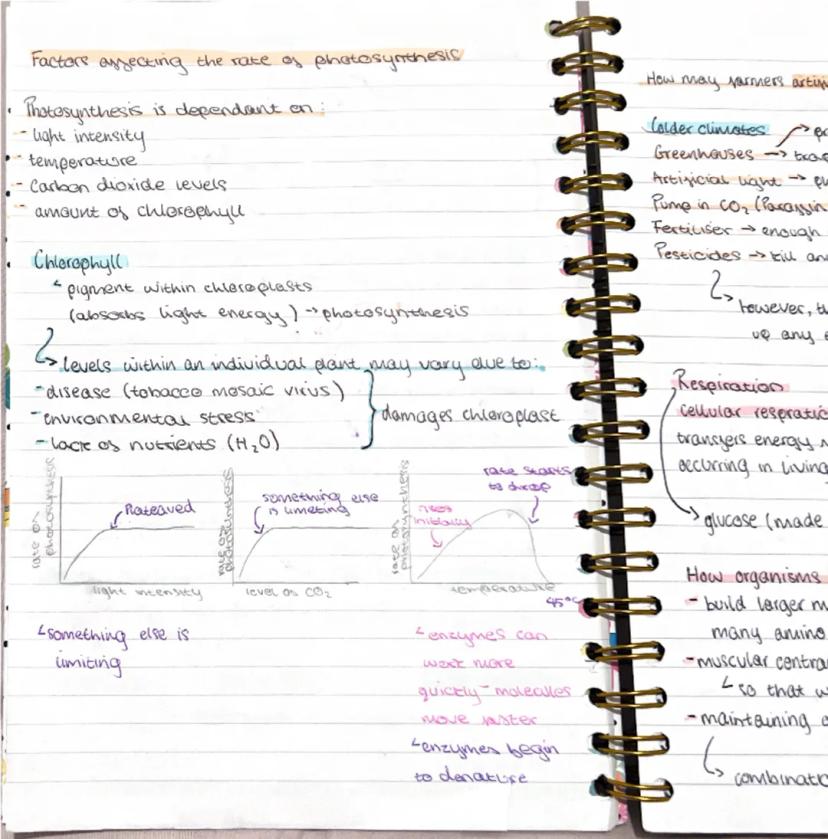 Factors affecting the rate of photosynthesis
Photosynthesis is dependant on:
- light intensity
- temperature
- carbon dioxide levels
- amount of chlorophyll
Chlorophyll
pigment within chloroplasts
(absorbs light energy) → photosynthesis
levels within an individual plant may vary due to:
- disease (tobacco mosaic virus)
- environmental stress
- lack of nutrients (H₂O)
damages chloroplast
rate of photosynthesis
Plateaued
light intensity
something else is
limiting
rate of photosynthesis
something else
is limiting
level of CO₂
rate of photosynthesis
rises
initially
rate starts
to drop
temperature
45°C
enzymes can
work more
quickly - molecules
move faster
enzymes begin
to denature
How may farmers
Colder climates →
Greenhouses →
Artificial light →
Pump in CO₂
Fertiliser → enough
Pesticides → kill
however,
up any
Respiration
cellular
transfers energy
occurring in living
glucose (made
How organisms
- build larger
many amino
- muscular
so that
- maintaining